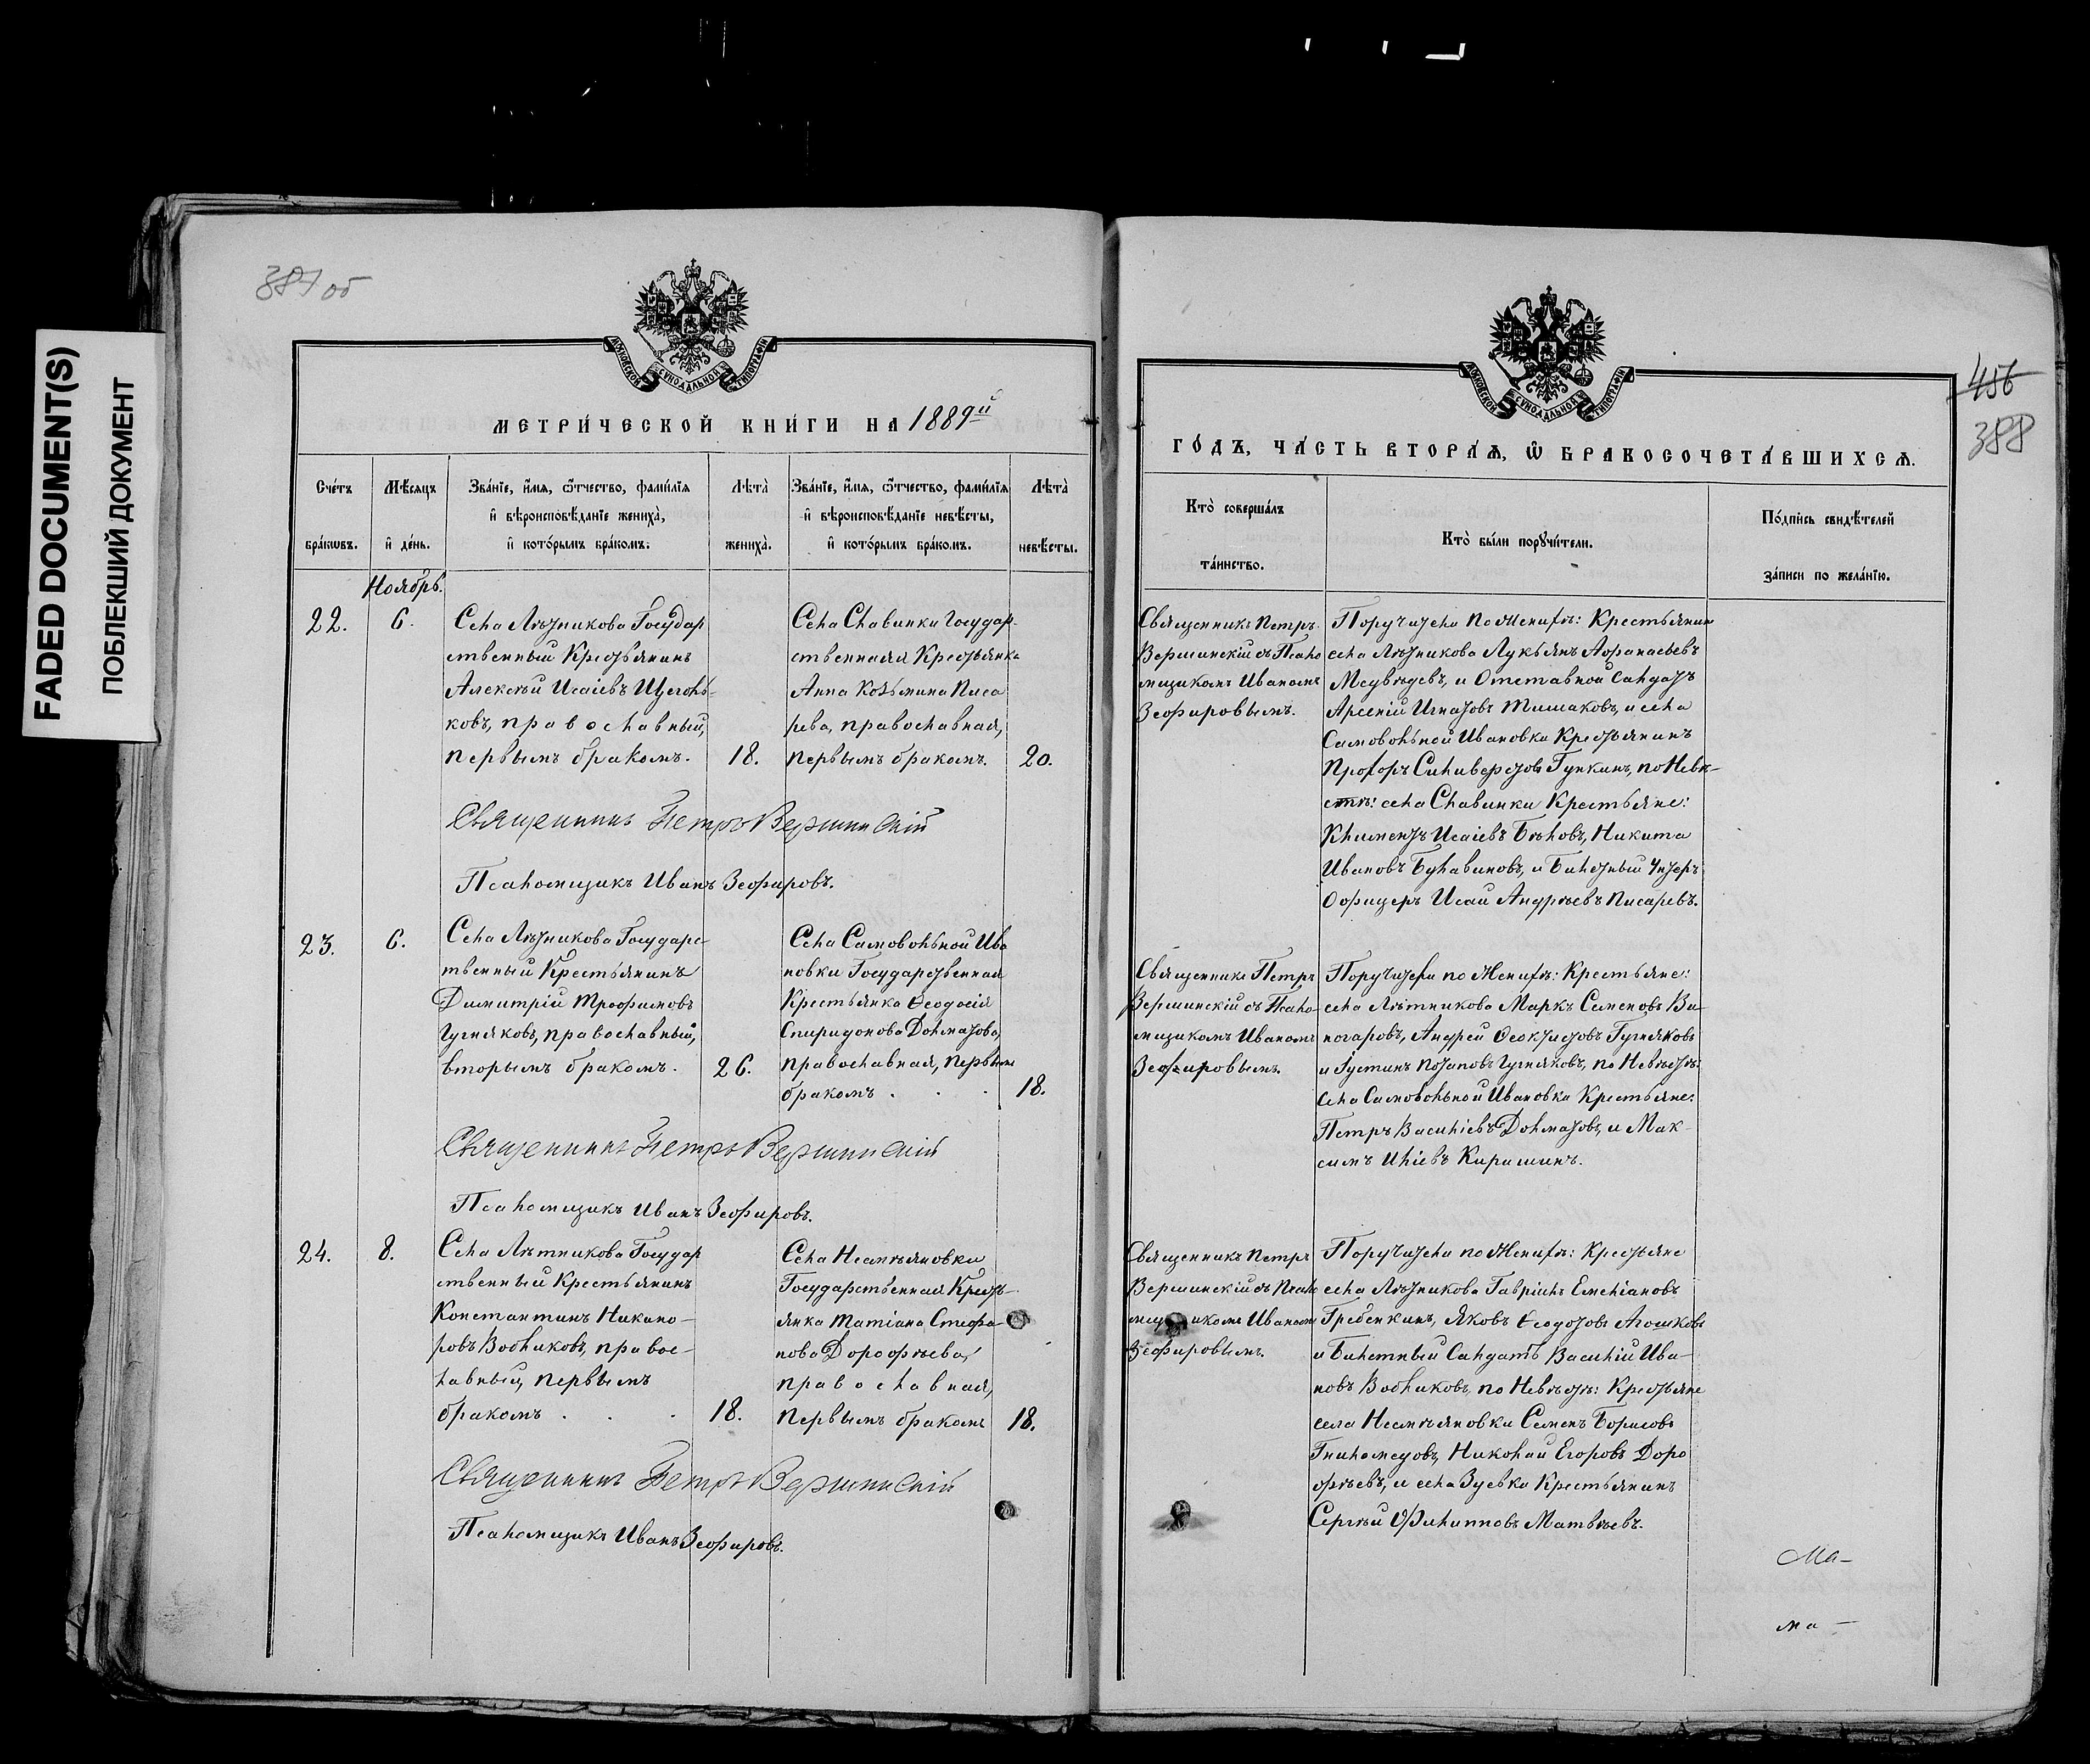 FADED DOCUMENT(S)
ПОБЛЕКШИЙ ДОКУМЕНТ
387 об
МОСКОВСКОЙ СѴНОДАЛЬНОЙ ТИПОГРАФІИ
МЕТРИ́ЧЕСКОЙ КНИ́ГИ НА 1889й
Сче́тъ бра́кѡвъ.
Мѣ́сяцъ и҆ де́нь.
Зва́нїе, и҆́мѧ, ѻ҆́тчество, фамѝлїѧ
и҆ вѣроисповѣ́данїе жениха̀,
и҆ кото́рымъ бра́комъ.
Лѣта̀
жениха̀.
Зва́нїе, и҆́мѧ, ѻ҆́тчество, фамѝлїѧ
и҆ вѣроисповѣ́данїе невѣ́сты,
и҆ кото́рымъ бра́комъ.
Лѣта̀
невѣ́сты.
Ноябрь.
22.
6.
Села Лѣтникова Государ
ственный Крестьянинъ
Алексѣй Исаіевъ Щеголь-
ковъ, православный,
первымъ бракомъ.
18.
Села Славинки Государ-
ственная Крестьянка
Анна Козьмина Писа
рева, православная,
первымъ бракомъ.
20.
Священникъ Петръ Вершинскій
Псаломщикъ Иванъ Зефировъ.
23.
6.
Села Лѣтникова Государс-
твенный Крестьянинъ
Димитрій Трофимовъ
Гугняковъ, православный,
вторымъ бракомъ.
26.
Села Самовольной Ива
новки Государственная
Крестьянка Ѳеодосія
Спиридонова Долматова,
православная, первымъ
бракомъ . . .
18.
Священникъ Петръ Вершинскій
Псаломщикъ Иванъ Зефировъ.
24.
8.
Села Лѣтникова Государ
ственный Крестьянинъ
Константинъ Никано-
ровъ Бобликовъ, правос-
лавный, первымъ
бракомъ . . .
18.
Села Несмѣяновки
Государственная Кресть-
янка Татіана Стефа
нова Дорофѣева,
православная,
первымъ бракомъ
18.
Священникъ Петръ Вершинскій
Псаломщикъ Иванъ Зефировъ.
456
388
МОСКОВСКОЙ СѴНОДАЛЬНОЙ ТИПОГРАФІИ
ГО́ДЪ, ЧА́СТЬ ВТОРА́Ѧ, Ѽ БРАКОСОЧЕТА́ВШИХСѦ.
Кто̀ соверша́лъ
та́инство.
Кто̀ бы́ли порꙋчи́тели.
По́дпись свидѣ́телей
за́писи по жела́нїю.
Священникъ Петръ
Вершинскій съ Псало
мщикомъ Иваномъ
Зефировымъ.
Поручители по Женихѣ: Крестьянин
села Лѣтникова Лукьянъ Афанасьевъ
Медвѣдевъ, и Отставной Салдатъ
Арсеній Игнатовъ Тишаковъ, и села
Самовольной Ивановки Крестьянинъ
Прохоръ Силиверстовъ Гупкинъ, по Невѣ-
стѣ: села Славинки Крестьяне:
Климентъ Исаіевъ Бѣловъ, Никита
Ивановъ Булавиновъ, и Билетный Унтеръ
Офицеръ Исай Андрѣевъ Писаревъ.
Священникъ Петръ
Вершинскій съ Псало-
мщикомъ Иваномъ
Зефировымъ.
Поручители по Женихѣ: Крестьяне:
села Лѣтникова Маркъ Семеновъ Ви-
ногаровъ, Андрей Ѳеоктистовъ Гугняковъ
и Густинъ Потаповъ Гугняковъ, по Невѣстѣ:
Села Самовольной Ивановки Крестьяне:
Петръ Василіевъ Долматовъ, и Мак-
симъ Иліевъ Киришинъ.
Священникъ Петръ
Вершинскій съ Псало
мщикомъ Иваномъ
Зефировымъ.
Поручители по Женихѣ: Крестьяне
села Лѣтникова Гавріилъ Емеліановъ
Гребенкинъ, Яковъ Ѳеодотовъ Агошковъ
и Билетный Салдатъ Василій Ива-
новъ Бобликовъ, по Невѣстѣ: Крестьяне
села Несмѣяновки Семенъ Борисовъ
Гниломедовъ, Николай Егоровъ Доро
фѣевъ, и села Зуевка Крестьянинъ
Сергѣй Филипповъ Матвѣевъ.
Ма-
ма-